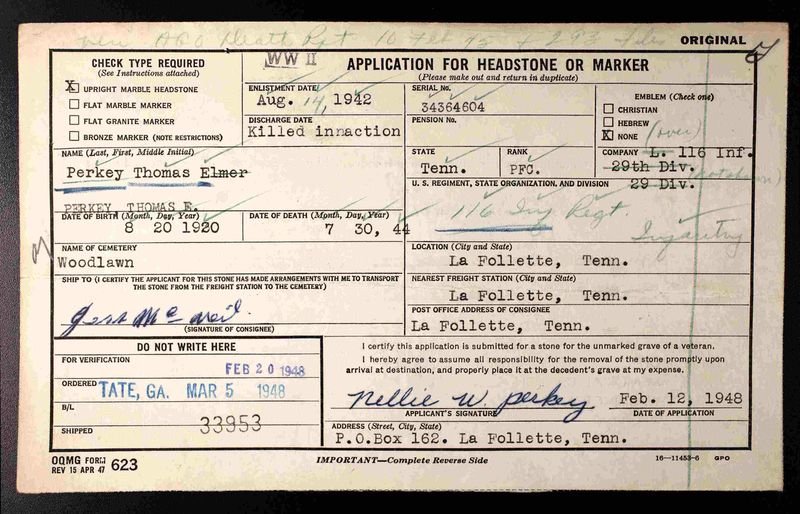 ORIGINAL
WW II
CHECK TYPE REQUIRED
(See Instructions attached)
X UPRIGHT MARBLE HEADSTONE
FLAT MARBLE MARKER
FLAT GRANITE MARKER
BRONZE MARKER (NOTE RESTRICTIONS)
APPLICATION FOR HEADSTONE OR MARKER
(Please make out and return in duplicate)
ENLISTMENT DATE
Aug. 14, 1942
DISCHARGE DATE
Killed innaction
SERIAL No.
34364604
PENSION No.
EMBLEM (Check one)
CHRISTIAN
HEBREW
X NONE (over)
NAME (Last, First, Middle Initial)
Perkey Thomas Elmer
PERKEY, THOMAS E.
STATE
Tenn.
RANK
PFC.
COMPANY L. 116 Inf.
29th Div.
29 Div.
U. S. REGIMENT, STATE ORGANIZATION, AND DIVISION
116 Inf Regt.
Infantry
DATE OF BIRTH (Month, Day, Year)
8 20 1920
DATE OF DEATH (Month, Day, Year)
7 30, 44
NAME OF CEMETERY
Woodlawn
LOCATION (City and State)
La Follette, Tenn.
SHIP TO (I CERTIFY THE APPLICANT FOR THIS STONE HAS MADE ARRANGEMENTS WITH ME TO TRANSPORT
THE STONE FROM THE FREIGHT STATION TO THE CEMETERY)
(SIGNATURE OF CONSIGNEE)
NEAREST FREIGHT STATION (City and State)
La Follette, Tenn.
POST OFFICE ADDRESS OF CONSIGNEE
La Follette, Tenn.
DO NOT WRITE HERE
FOR VERIFICATION
FEB 20 1948
ORDERED
TATE, GA. MAR 5 1948
B/L
33953
SHIPPED
I certify this application is submitted for a stone for the unmarked grave of a veteran.
I hereby agree to assume all responsibility for the removal of the stone promptly upon
arrival at destination, and properly place it at the decedent's grave at my expense.
Nellie W. Perkey
Feb. 12, 1948
APPLICANT'S SIGNATURE
DATE OF APPLICATION
ADDRESS (Street, City, State)
P.O.Box 162. La Follette, Tenn.
OQMG FORM 623
REV 15 APR 47
IMPORTANT—Complete Reverse Side
16—11453-6 GPO